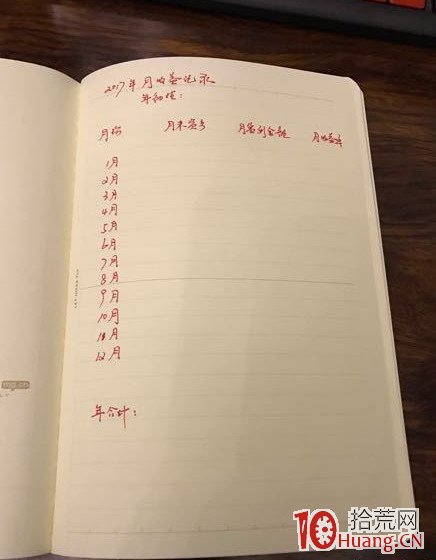 2017年月收益记录
年初值：
月份 月末盈亏 月盈利金额 月收益率
1月
2月
3月
4月
5月
6月
7月
8月
9月
10月
11月
12月
年合计：
10 拾荒网
Huang.CN